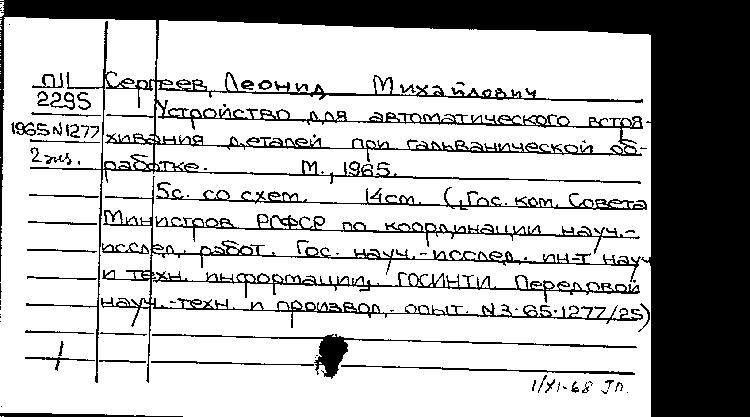 П11 Сергеев, Леонид Михайлович
2295 Устройство для автоматического встря-
1965 N1277 хивания деталей при гальванической об-
2 экз. работке. М., 1965.
5с. со схем. 14см. (Гос. ком. Совета
Министров РСФСР по координации науч.-
исслед. работ. Гос. науч.-исслед. ин-т науч
и техн. информации, ГОСИНТИ. Передовой
науч.-техн. и производ. опыт. N3-65-1277/25)
1/XI-68